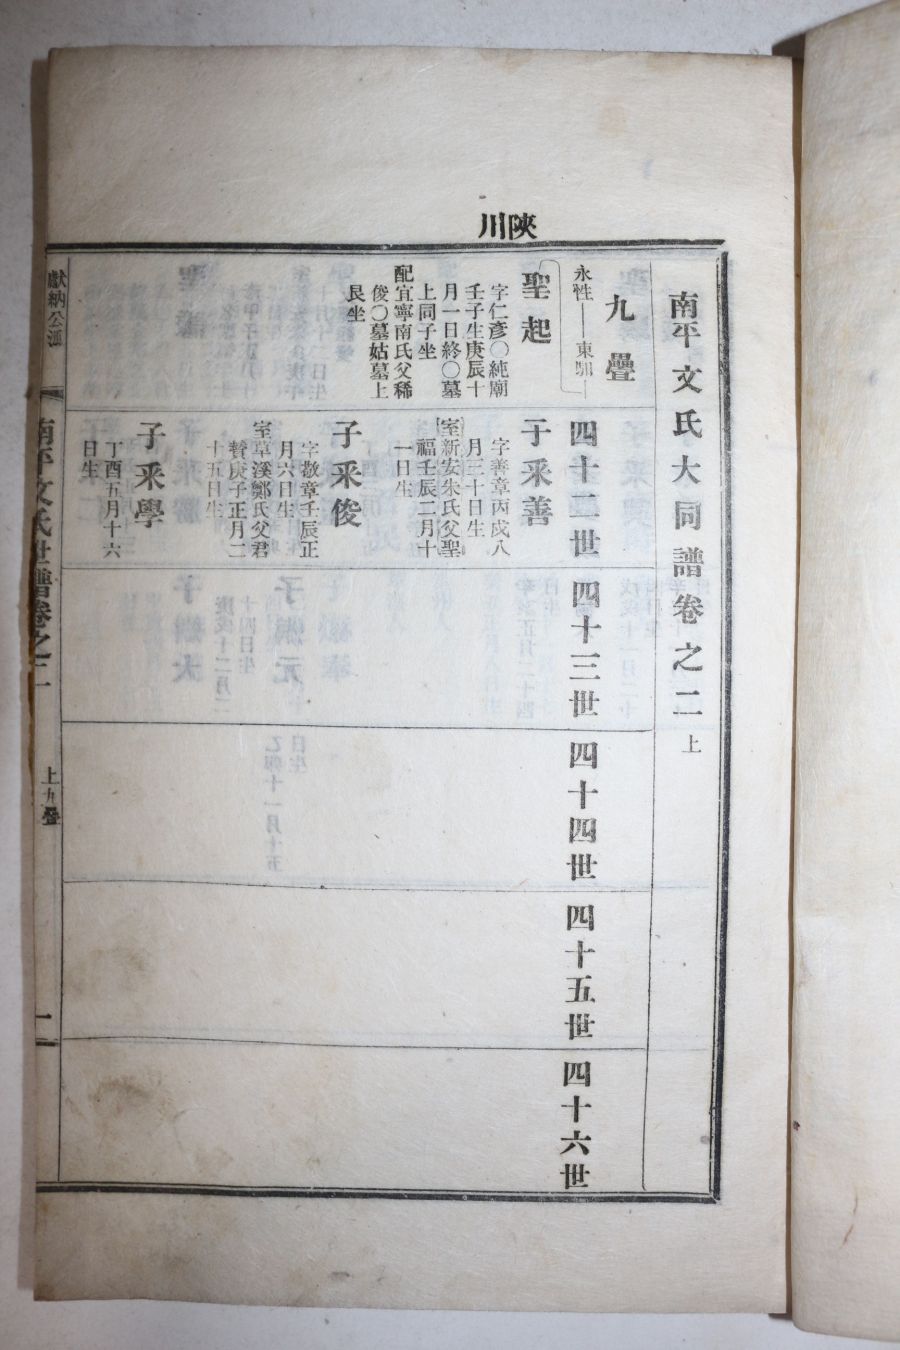 陜川
南平文氏大同譜卷之二 上
九疊
永性 東
四十二世
四十三世
四十四世
四十五世
四十六世
聖起
字仁彥〇純廟
壬子生庚辰十
月一日終〇墓
上同子坐
配宜寧南氏父稀
俊〇墓姑墓上
艮坐
子采善
字善章丙戌八
月三十日生
室新安朱氏父聖
福壬辰二月十
一日生
子采俊
字敬章壬辰正
月六日生
室草溪鄭氏父君
贊庚子正月二
十五日生
子采學
丁酉五月十六
日生
獻納公派
南平文氏世譜卷之二
上九疊
一